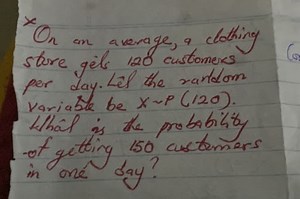 x
On an average, a clothing
store gets 120 customers
per day. Let the random
variable be X~P(120).
What is the probability
of getting 150 customers
in one day?